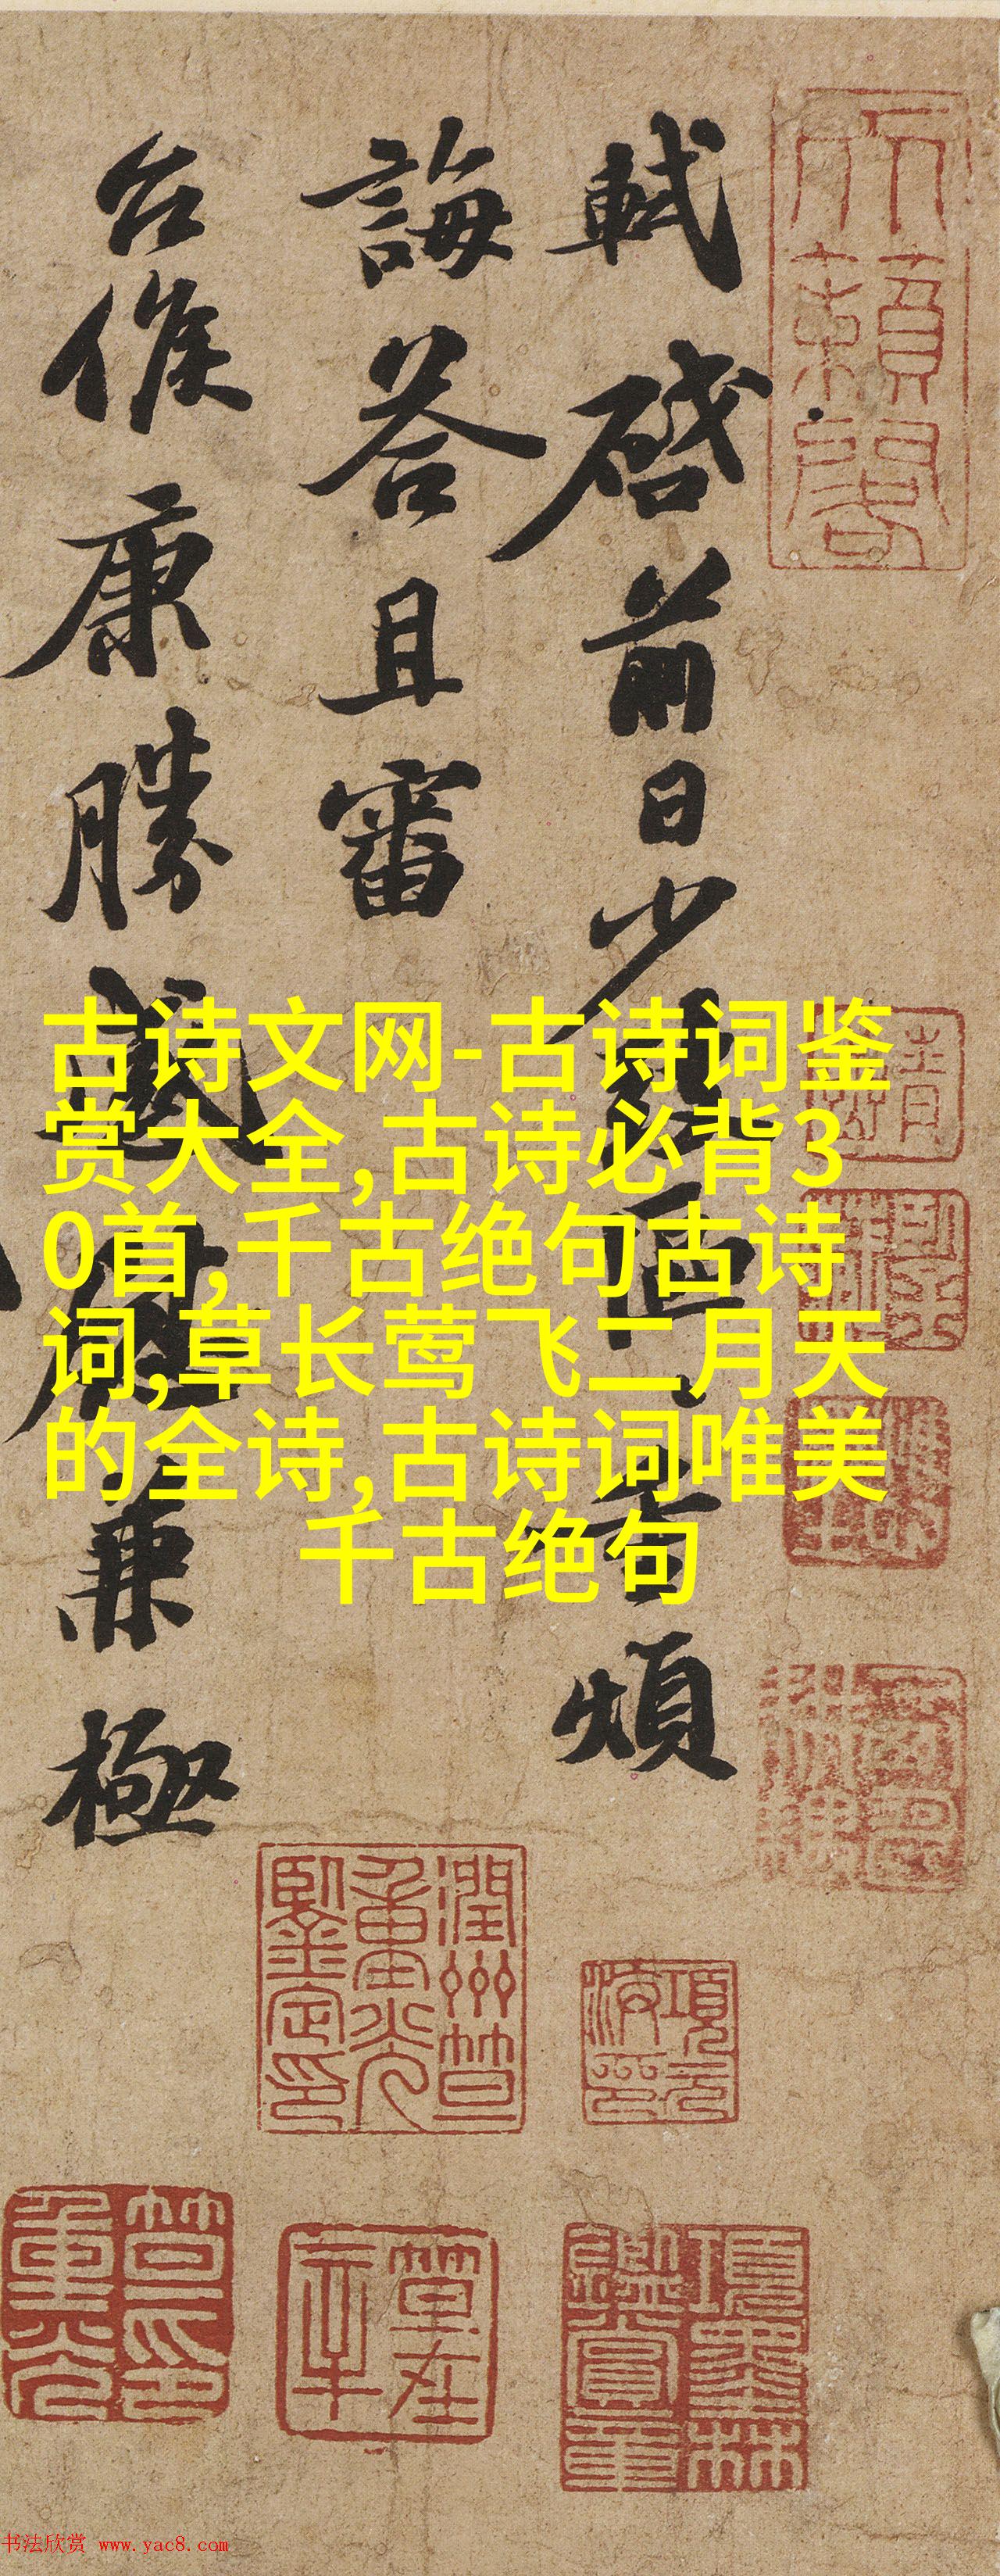 天籟閣
軾啓前日少區煩
誨答且審
台候康勝感兼極
古诗文网-古诗词鉴
赏大全,古诗必背3
0首,千古绝句古诗
词,草长莺飞二月天
的全诗,古诗词唯美
千古绝句
項墨林鑒賞章
书法欣赏 www.yac8.com